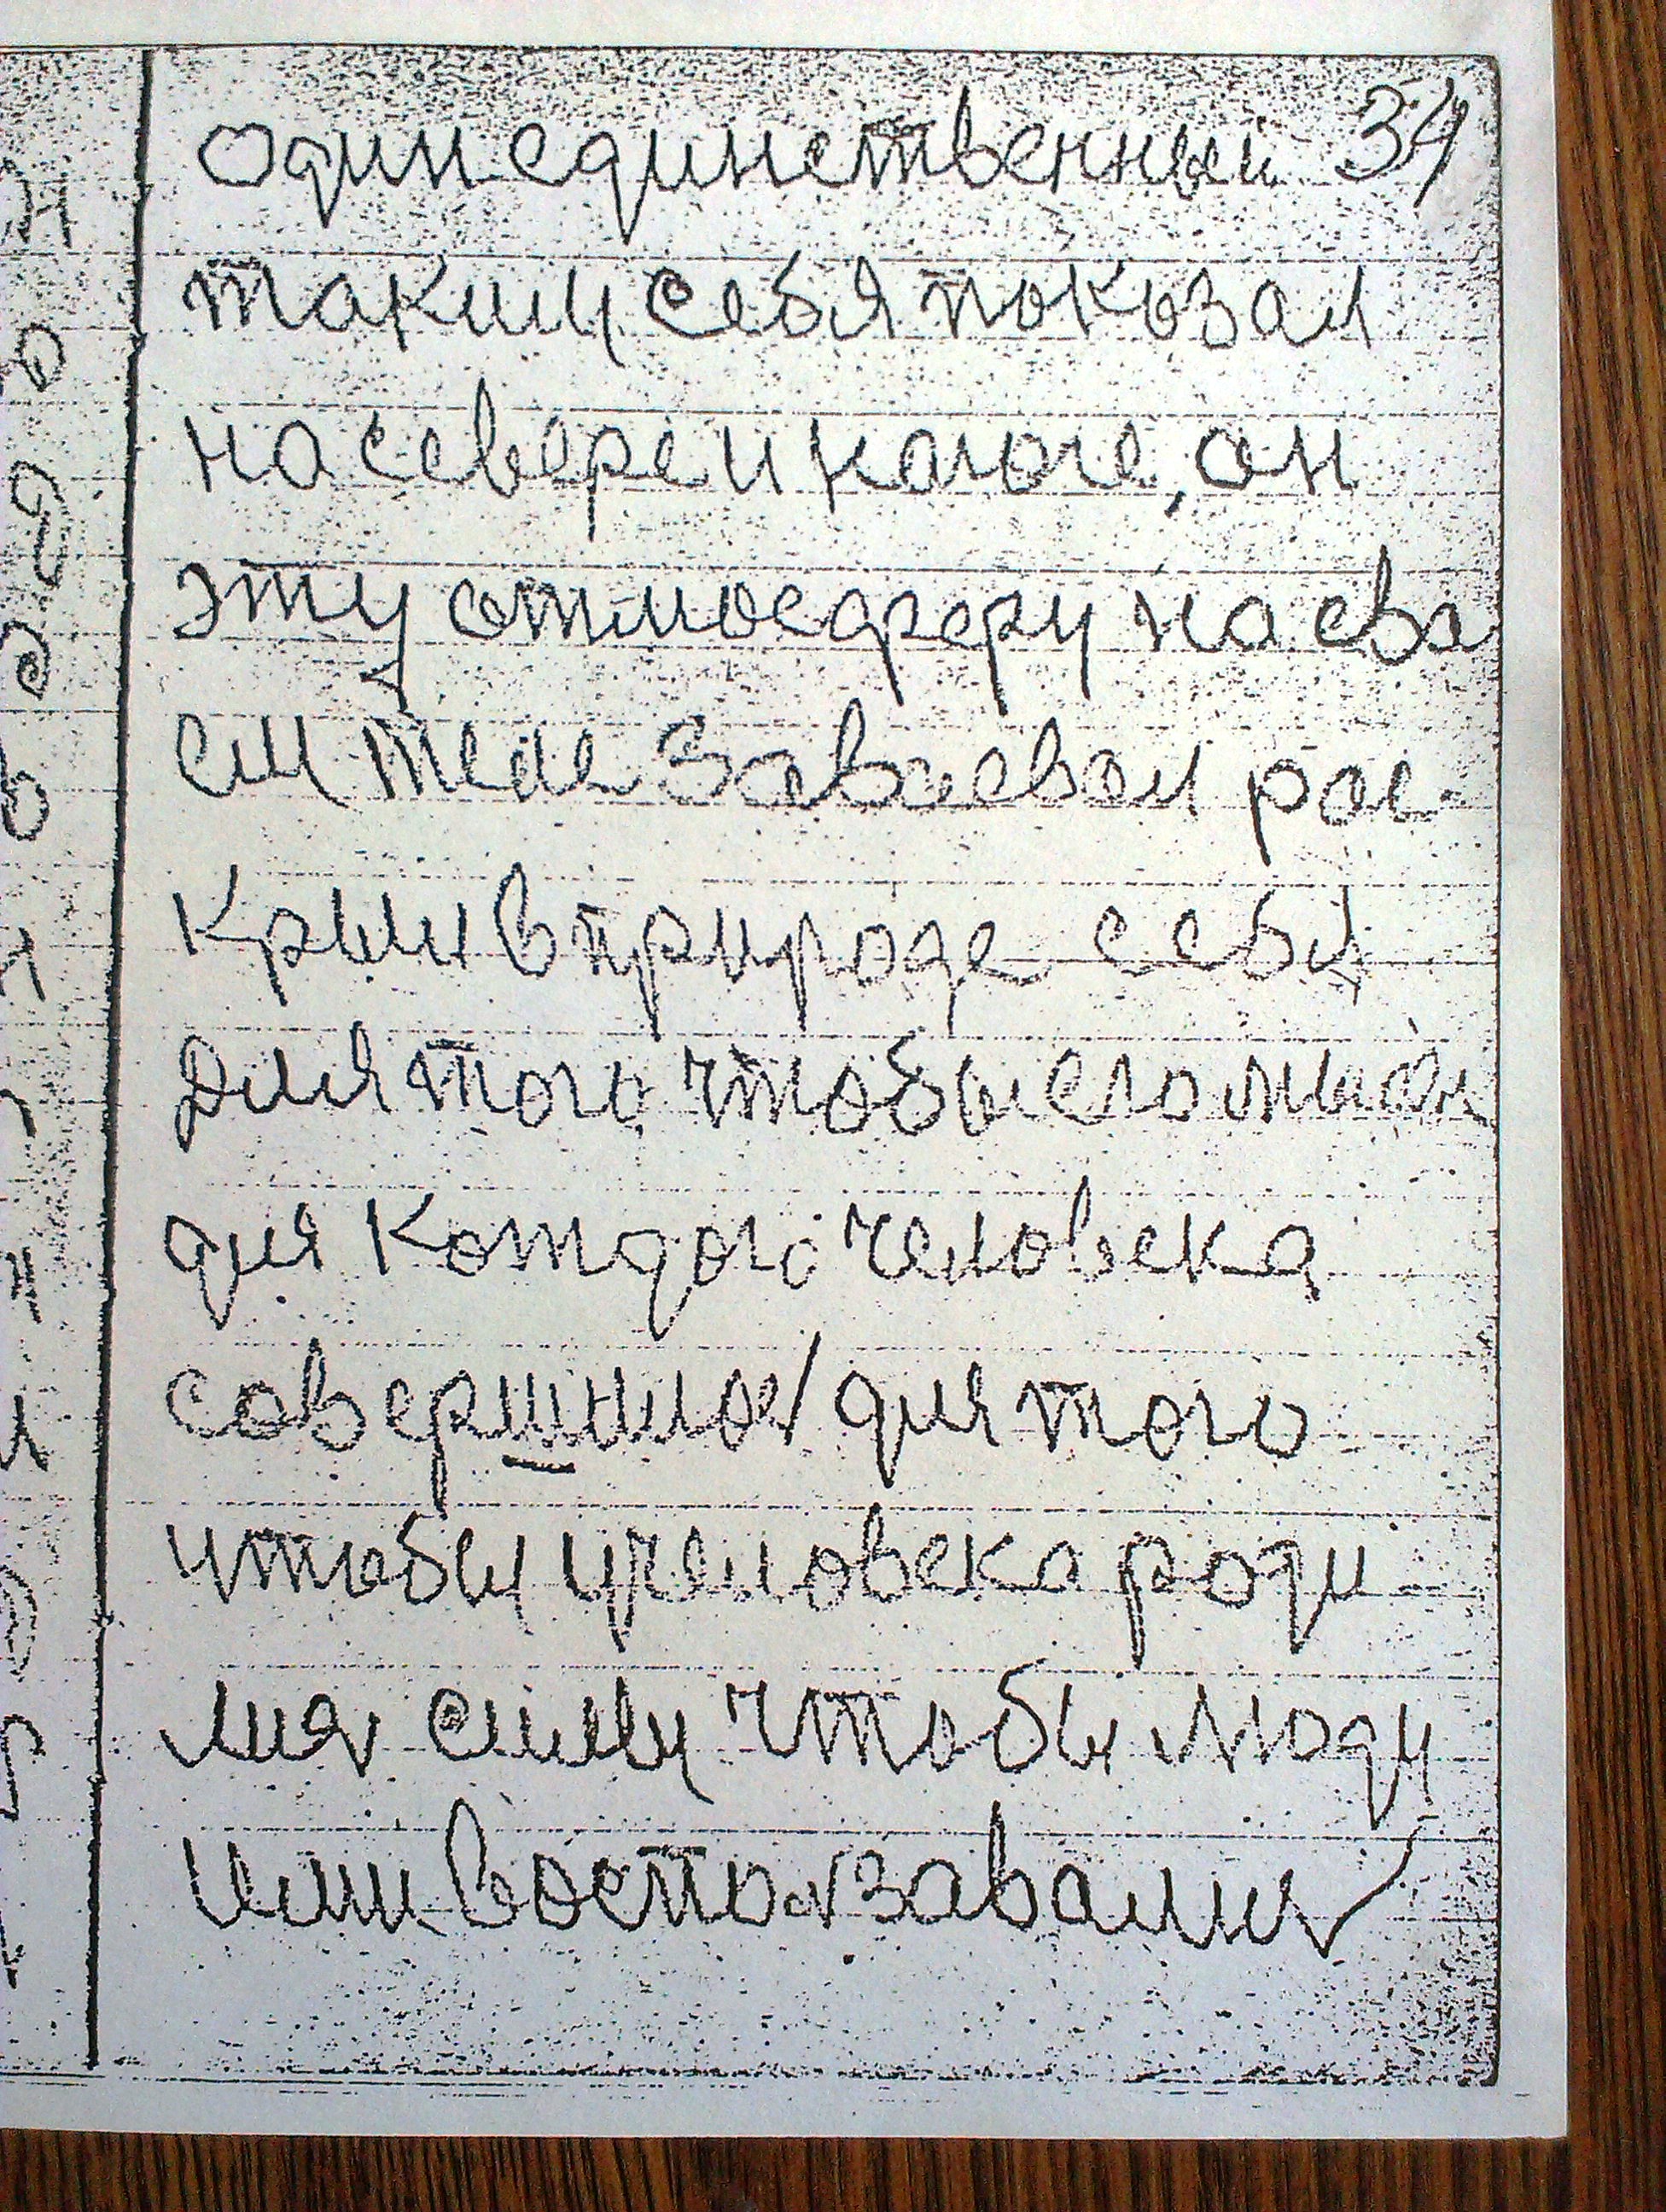 один единственный 34
таким себя показал
на севере и на юге, он
эту отмосферу на сво
ем теле завоевал рас
крыл в природе силы
для того чтобы его
для кождого человека
совершилось для того
чтобы у человека роди
лися силы чтобы люди
ими воспользавались